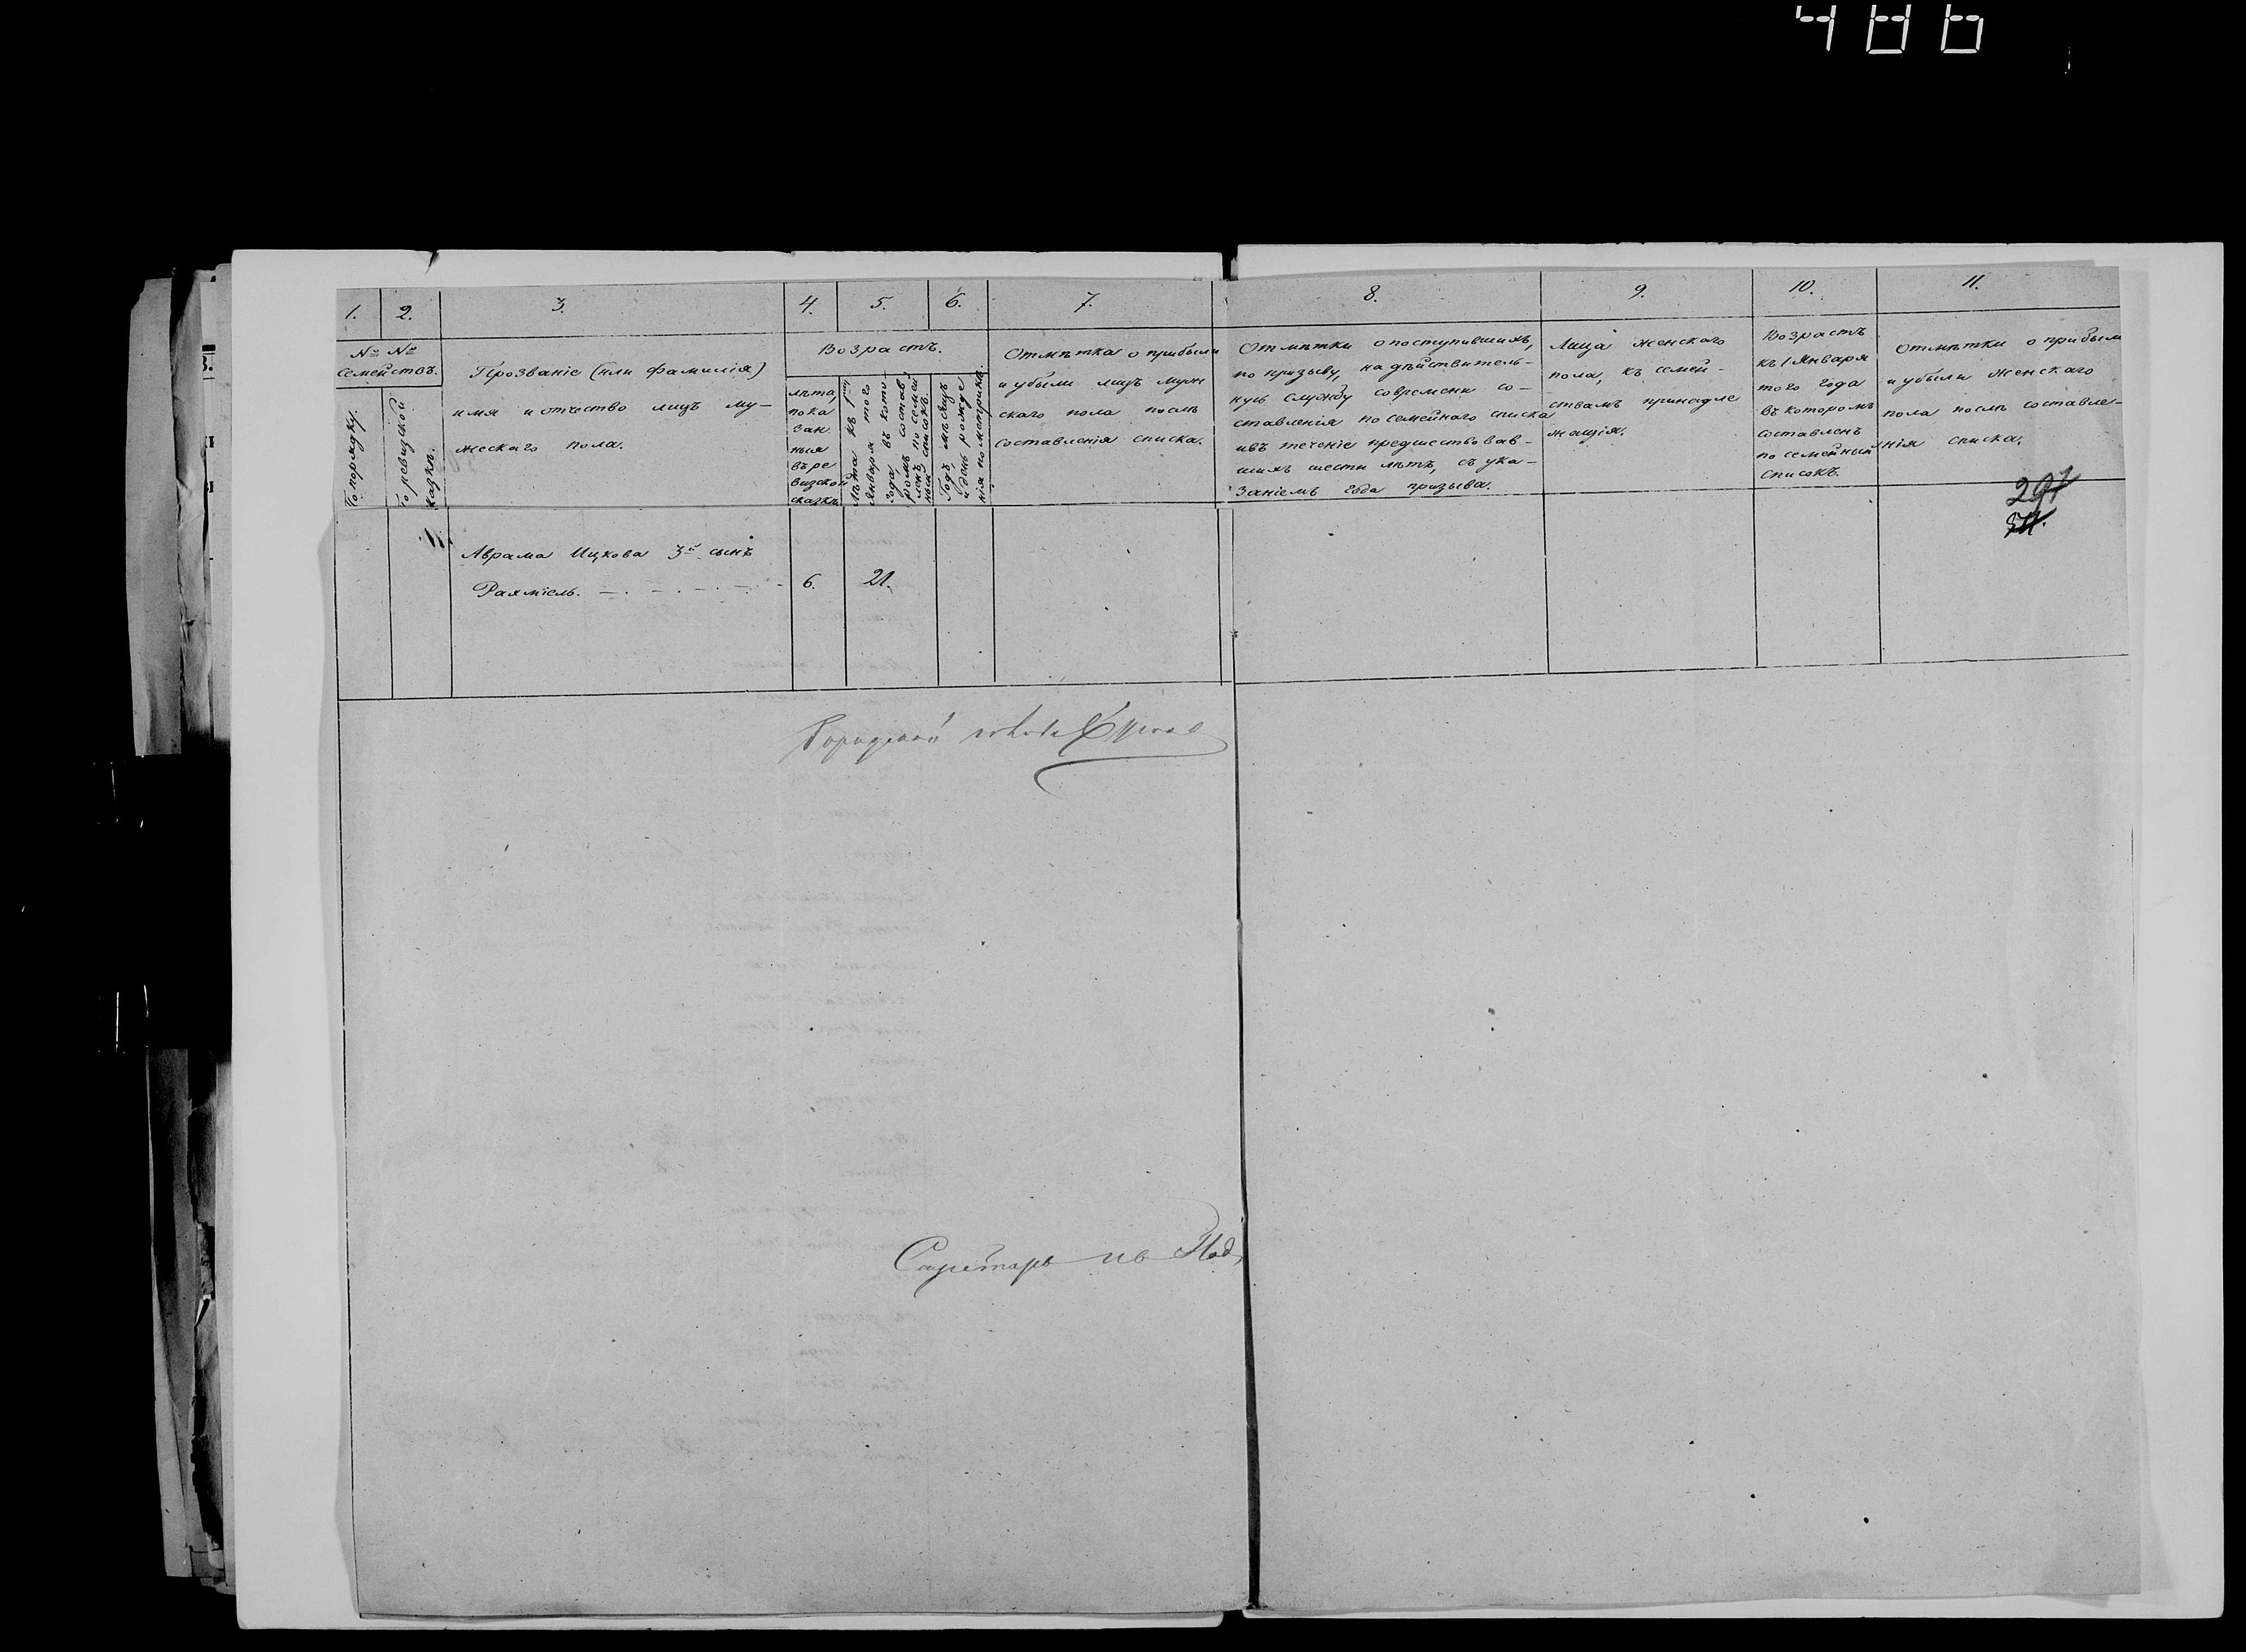 486
1. 2. 3. 4. 5. 6. 7. 8. 9. 10. 11.
№ №
семействъ.
По порядку.
По ревизской
сказкѣ.
Прозваніе (или фамилія)
имя и отчество лицъ му-
жескаго пола.
Возрастъ.
лѣта,
пока
зан
ныя
въ ре
визской
сказкѣ
Лѣта къ 1му
Января того
года, въ кото-
ромъ состав-
ленъ посемей
ный списокъ.
Годъ мѣсяцъ
и день рожде
нія по метрикѣ.
Отмѣтка о прибыли
и убыли лицъ муж
скаго пола послѣ
составленія списка.
Отмѣтки о поступившихъ,
по призыву, на дѣйствитель-
ную службу современи со-
ставленія посемейнаго списка
и въ теченіе предшествовав-
шихъ шести лѣтъ, съ ука-
заніемъ года призыва.
Лица женскаго
пола, къ семей-
ствамъ принадле
жащія.
Возрастъ
къ 1 Января
того года
въ которомъ
составленъ
посемейный
списокъ.
Отмѣтки о прибыли
и убыли женскаго
пола послѣ составле-
нія списка.
291
Аврама Ицкова 3й сынъ
Рахміель. 6. 21.
Городской голова
Секретарь